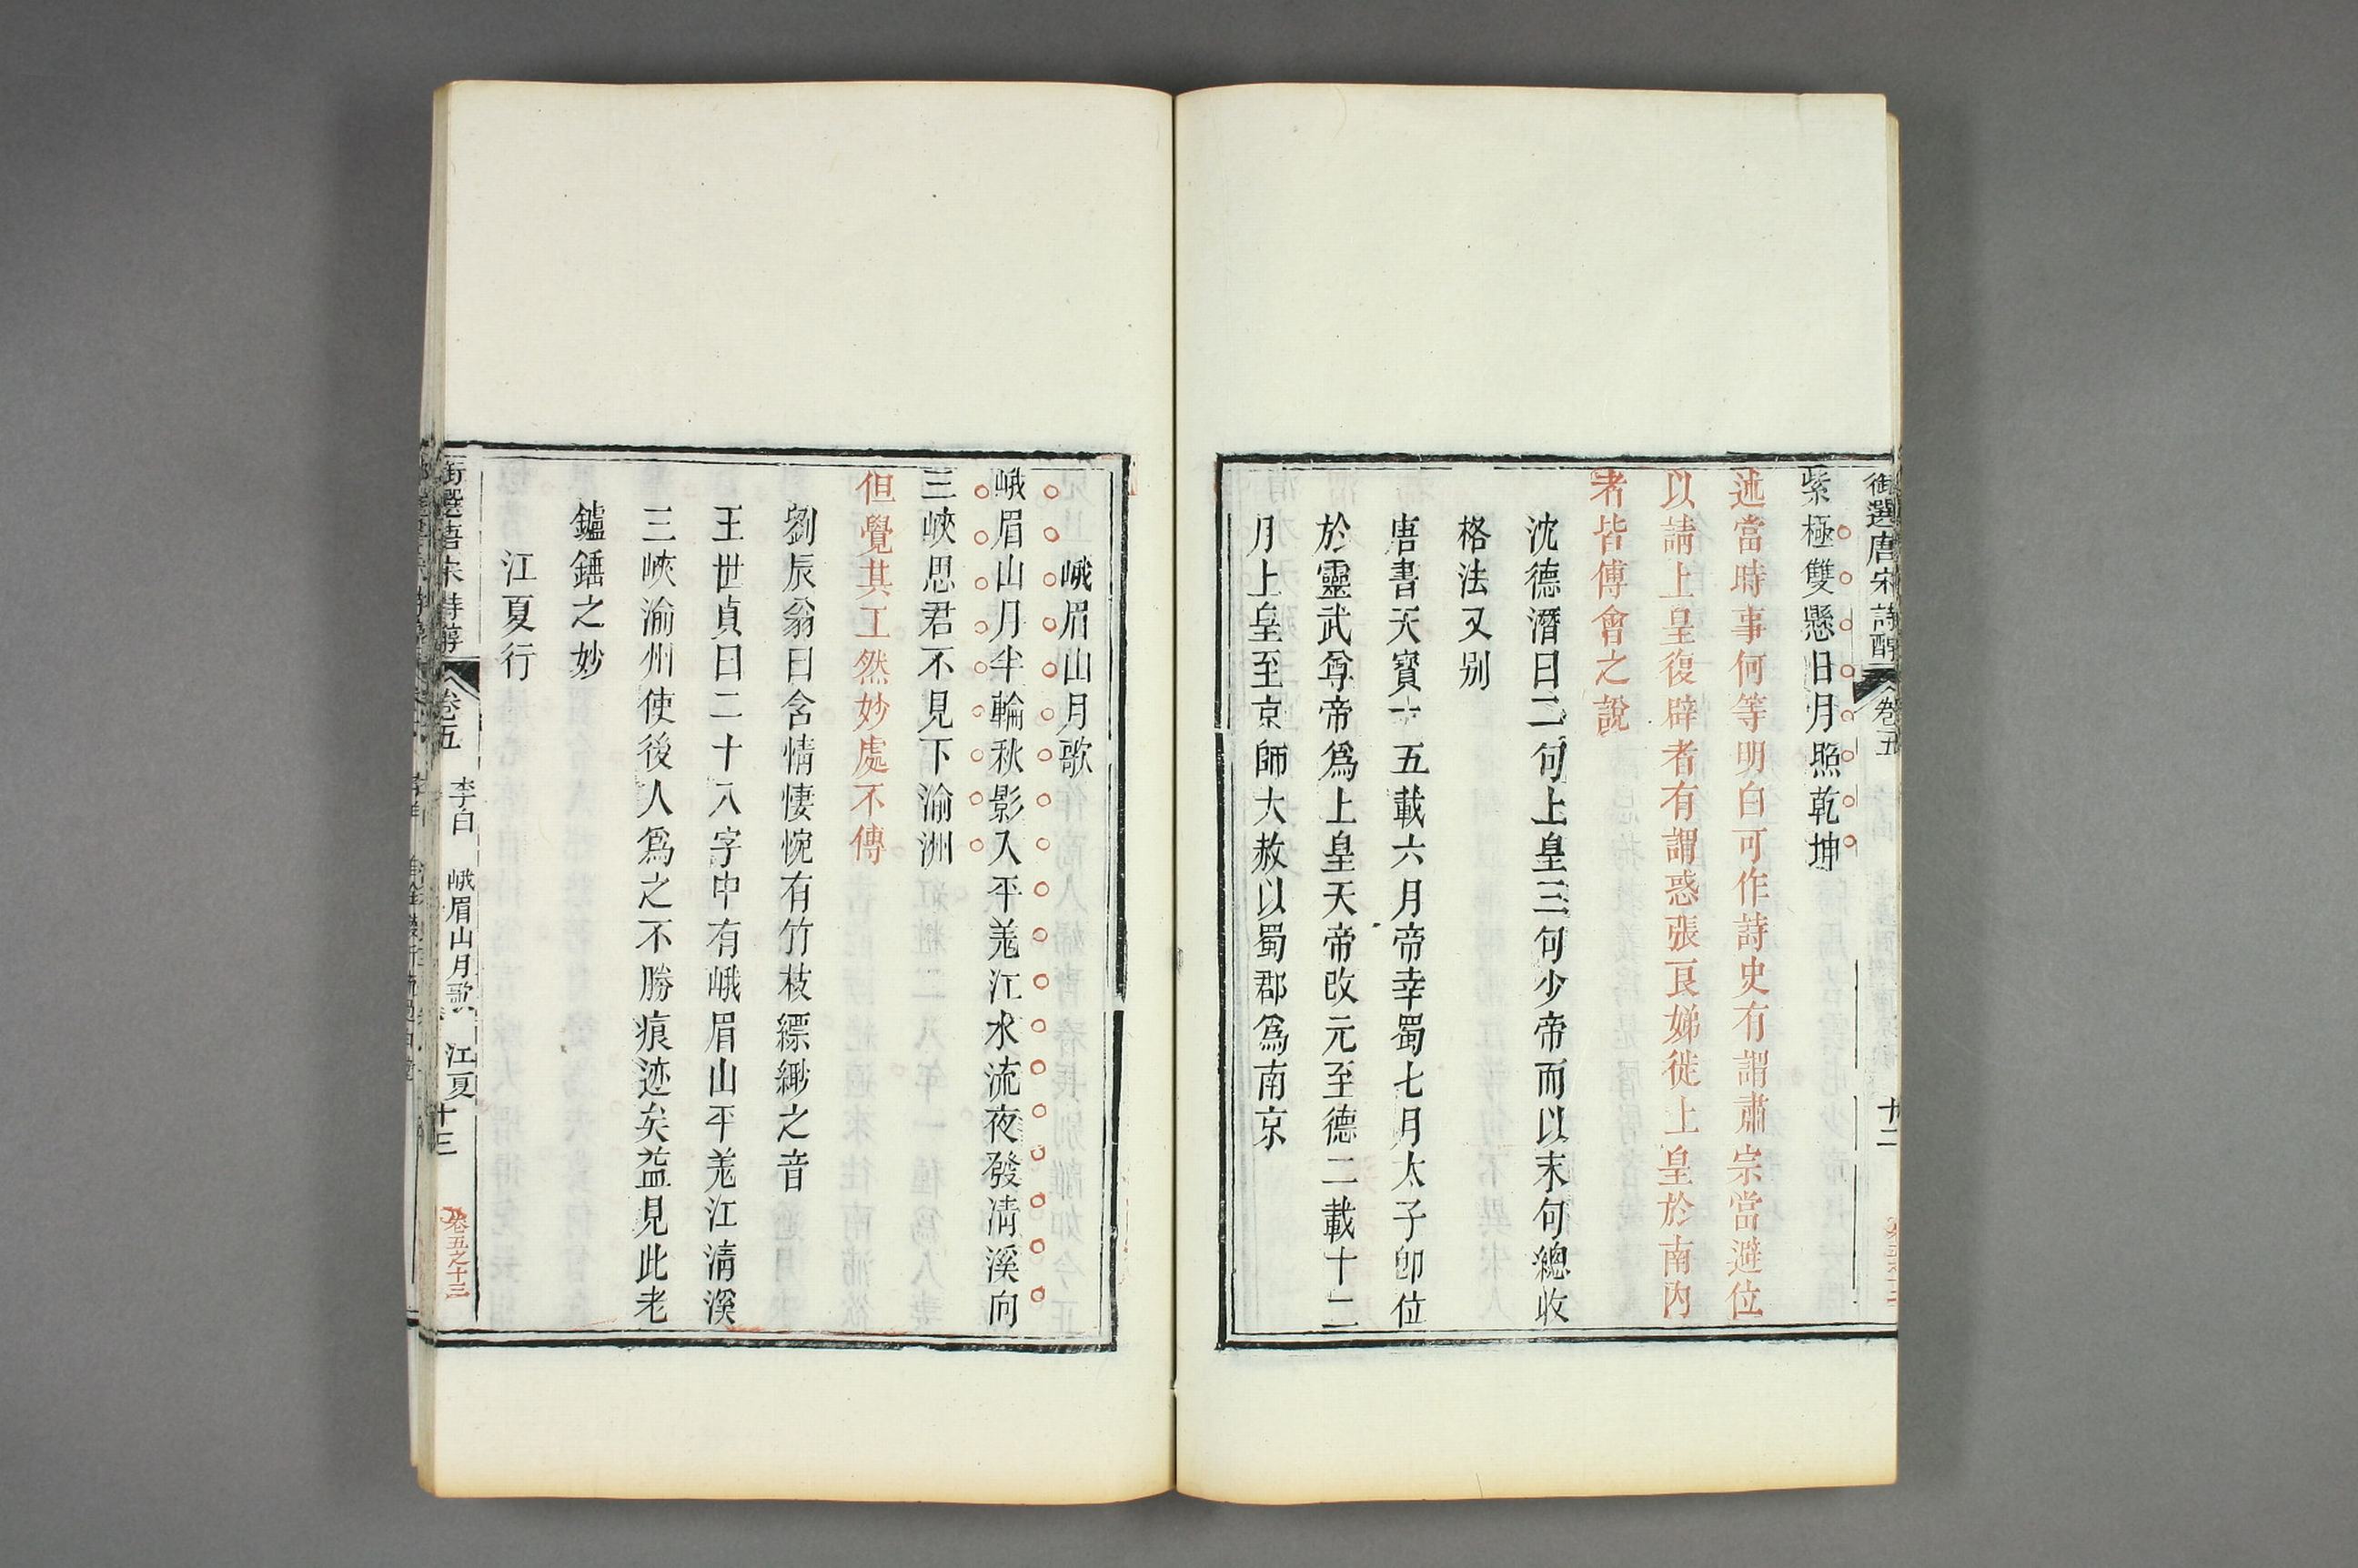 御選唐宋詩醇 卷五 十二
紫極雙懸日月照乾坤
述當時事何等明白可作詩史有謂肅宗當避位
以請上皇復辟者有謂惑張良娣徙上皇於南內
者皆傅會之說
沈德潛曰二句上皇三句少帝而以末句總收
格法又別
唐書天寶十五載六月帝幸蜀七月太子卽位
於靈武尊帝爲上皇天帝改元至德二載十二
月上皇至京師大赦以蜀郡爲南京
峨眉山月歌
峨眉山月半輪秋影入平羗江水流夜發清溪向
三峽思君不見下渝洲
但覺其工然妙處不傳
劉辰翁曰含情悽惋有竹枝縹緲之音
王世貞曰二十八字中有峨眉山平羗江清溪
三峽渝州使後人爲之不勝痕迹矣益見此老
鑪錘之妙
江夏行
御選唐宋詩醇 卷五 李白 峨眉山月歌 江夏 十三 卷五之十三